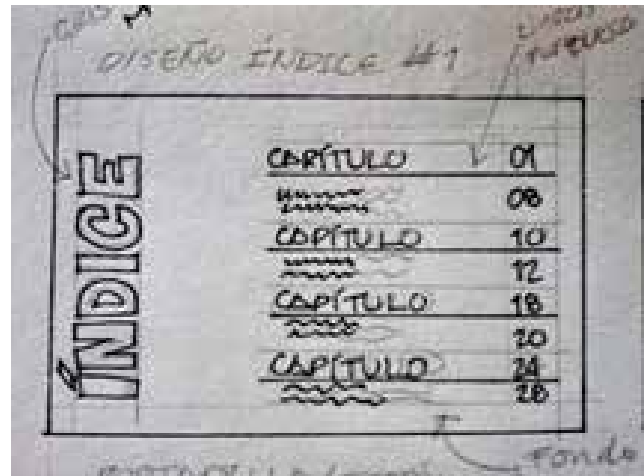 DISEÑO ÍNDICE #1
ÍNDICE
CAPÍTULO 01
08
CAPÍTULO 10
12
CAPÍTULO 18
20
CAPÍTULO 24
28
Fondo